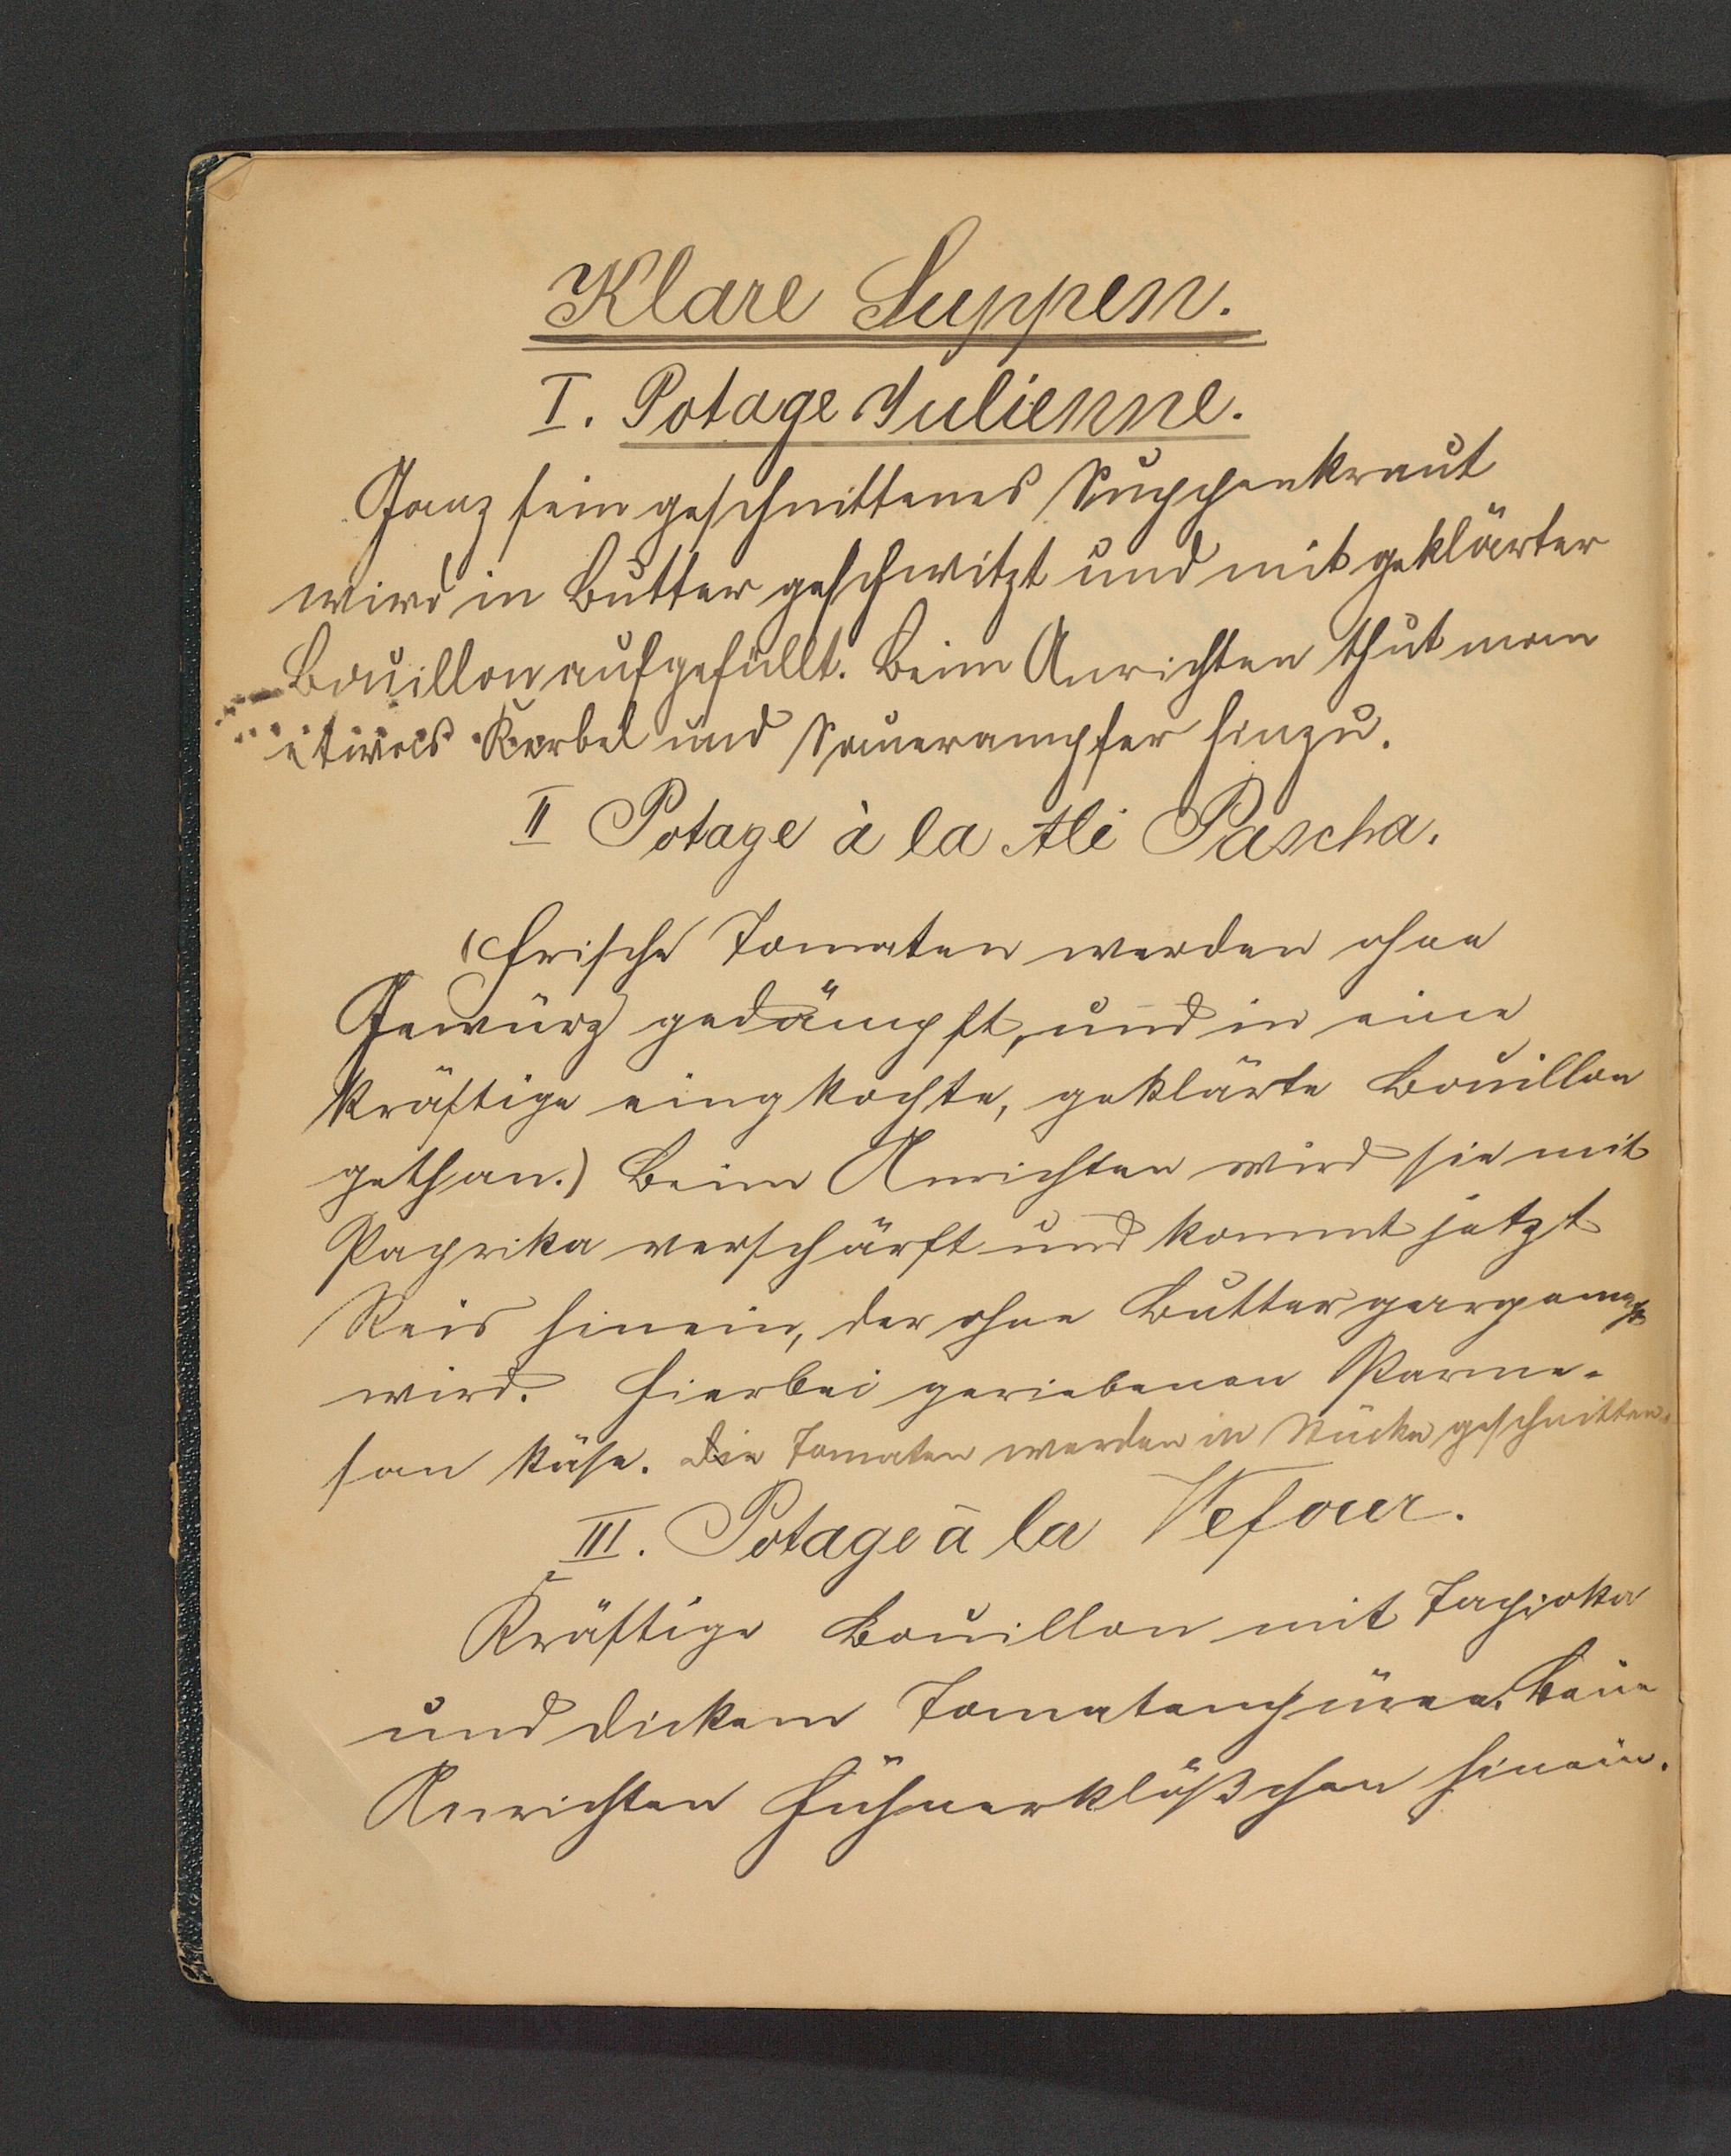 Klare Suppen.
I. Potage Julienne.
Ganz fein geschnittenes Suppenkraut
wird in Butter geschwitzt und mit geklärter
Bouillon aufgefüllt. Beim Anrichten thut man
etwas Kerbel und Sauerampfer hinzu.
II Potage à la Ali Pascha.
(Frische Tomaten werden ohne
Gewürz gedämpft, und in eine
kräftige eingkochte, geklärte Bouillon
gethan.) Beim Anrichten wird sie mit
Paprika verschärft und kommt jetzt
Reis hinein, der ohne Butter gargemacht
wird. Hierbei geriebenen Parme-
san käse. Die Tomaten werden in Stücke geschnitten.
III. Potage à la Vefour.
Kräftige Bouillon mit Tapioka
und dickem Tomatenpüree. Beim
Anrichten Hühnerklößchen hinein.